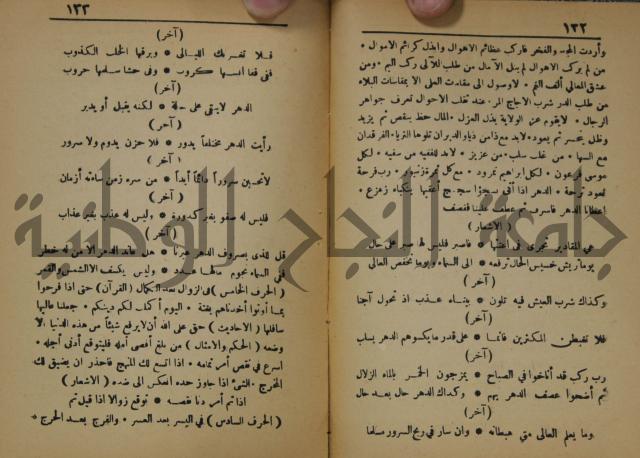 ١٣٢
وأردت المجد والفخر فاركب عظائم الاهوال وابذل كرائم الاموال •
من لم يركب الاهوال لم ينل الآمال من طلب اللآلى ركب اليم • ومن
عشق المعالى ألف الغم • لاوصول الى مقاعدت العلى الا بمقاسات البلاء
من طلب الدر شرب الاجاج المر • عند تقلب الاحوال تعرف جواهر
الرجال • لايقوم عن الولاية بذل العزل • المال حظ ينقص ثم يزيد
وظل ينحسر ثم يعود • لابد مع
مع السها • من غلب سلب • من عزيز • لابد للفقيه من سفيه • لكل
موسى فرعون • لكل ابراهيم نمرود • مع كل تمرة زنبور • رب فرحة
تعود ترحة • الدهر اذا أتى
اعطانا الدهر فاسرف ثم عطف علينا فنسف
( الاشعار )
هى المقادير تجرى فى أعنتها • فاصبر فليس لها صبر على حال
يوما تريش خسيس الحال ترفعه • الى السماء ويوما تخفض العالى
( آخر )
وكذاك شرب العيش فيه تلون • بيناه عذب اذ تحول آجنا
( آخر )
فلا تغبطن المكثرين فانما • على قدر مايكسوهم الدهر يسلب
( آخر )
رب ركب قد أناخوا فى الصباح • يمزجون الخمر بالماء الزلال
ثم أضحوا عصف الدهر بهم • وكذاك الدهر حال بعد حال
( آخر )
وما يعلم العالى متى هبطاته • وان سار فى ريح السرور مسلما
١٣٣
( آخر )
فلا تغررك الليالى • وبرقها الخلب الكذوب
ففى قفا انسها كروب • وفى حشا سلمها حروب
( آخر )
الدهر لايبقى على حالة • لكنه يقبل أو يدبر
( آخر )
رأيت الدهر مختلفا يدور • فلا حزن يدوم ولا سرور
( آخر )
لاتحسبن سروراً دائماً أبداً • من سره زمن ساءته أزمان
( آخر )
فليس له صفو بغير كدورة • وليس له عذب بغير عذاب
( آخر )
قل للذى بصروف الدهر عيرنا • هل عاند الدهر الا من له خطر
ففى السماء نجوم مالها عدد • وليس يكسف الا الشمس والقمر
( الحرف الخامس ) فى الزوال بعد الكمال ( القرآن ) حتى اذا فرحوا
بما أوتوا أخذناهم بغتة • اليوم أكملت لكم دينكم • جعلنا عاليها
سافلها ( الاحاديث ) حق على الله أن لايرفع شيئاً من هذه الدنيا الا
وضعه ( الحكم والامثال ) من بلغ أقصى أمله فليتوقع أدنى أجله •
أسرع فى نقص أمر تمامه • اذا اتسع لك المنهج فاحذر ان يضيق لك
المخرج • الشئ اذا جاوز حده انعكس الى ضده ( الاشعار )
اذا تم أمر دنا نقصه • توقع زوالا اذا قيل تم
( الحرف السادس ) فى اليسر بعد العسر • والفرج بعد الحرج •
جامعة النجاح الوطنية